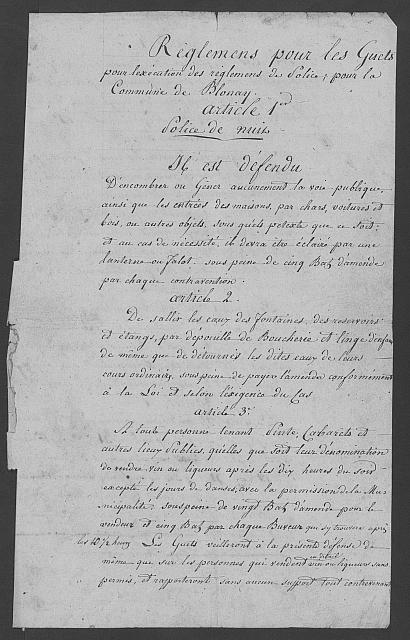 Réglemens pour les Guets
pour l'exécution des réglemens de Police, pour la
Commune de Blonay.
article 1er
Police de nuit
Il est défendu
D'encombrer ou Gener aucunement la voie publique,
ainsi que les entrées des maisons, par chars, voitures et
bois, ou autres objets, sous quels pretexte que ce soit:
et au cas de nécessité, il devra être éclairé par une
lanterne ou falot: sous peine de cinq Batz d'amende
par chaque contravention.
article 2.
De sallir les eaux des fontaines, des reservoirs
et étangs, par dépouille de Boucherie et linge
de même que de détourner les dites eaux de leurs
cours ordinaire, sous peine de payer l'amende conformément
à la Loi et selon l'exigence du Cas
article 3e
A toute personne tenant Pinte, Cabarets et
autres lieux Publics, quélles que soit leur dénomination
de vendre vin ou liqueurs après les dix heures du soir
excepté les jours de danses, avec la permission de la Mu-
nicipalité: sous peine de vingt Batz d'amende pour le
vendeur et cinq Batz par chaque Buveur qui s'y trouvera après
les 10 1/2 heures Les Guets veilleront à la présente défense de
même que sur les personnes qui vendent en détail vin ou liqueurs sans
permis, et rapporteront sans aucun support tout contrevenant